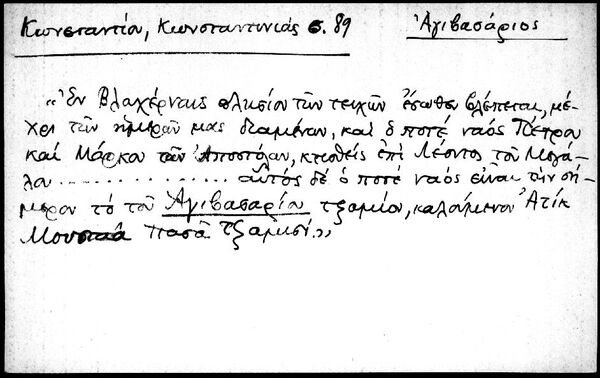 Κωνσταντίου, Κωνσταντινιάς σ. 89
Ἁγιβασάριος
«Ἐν Βλαχέρναις πλησίον τῶν τειχῶν ἔσωθεν βλέπεται, μέ-
χρι τῶν ἡμερῶν μας διαμένων, καὶ ὁ ποτέ ναός Πέτρου
καί Μάρκου τῶν Ἀποστόλων, κτισθείς ἐπί Λέοντος τοῦ Μεγά-
λου .................. αὐτός δέ ὁ ποτέ ναός εἶναι τήν σή-
μερον τό τοῦ Ἁγιβασαρίου τζαμίον, καλούμενον Ἀτίκ
Μουσταφᾶ Πασᾶ τζαμισί.»